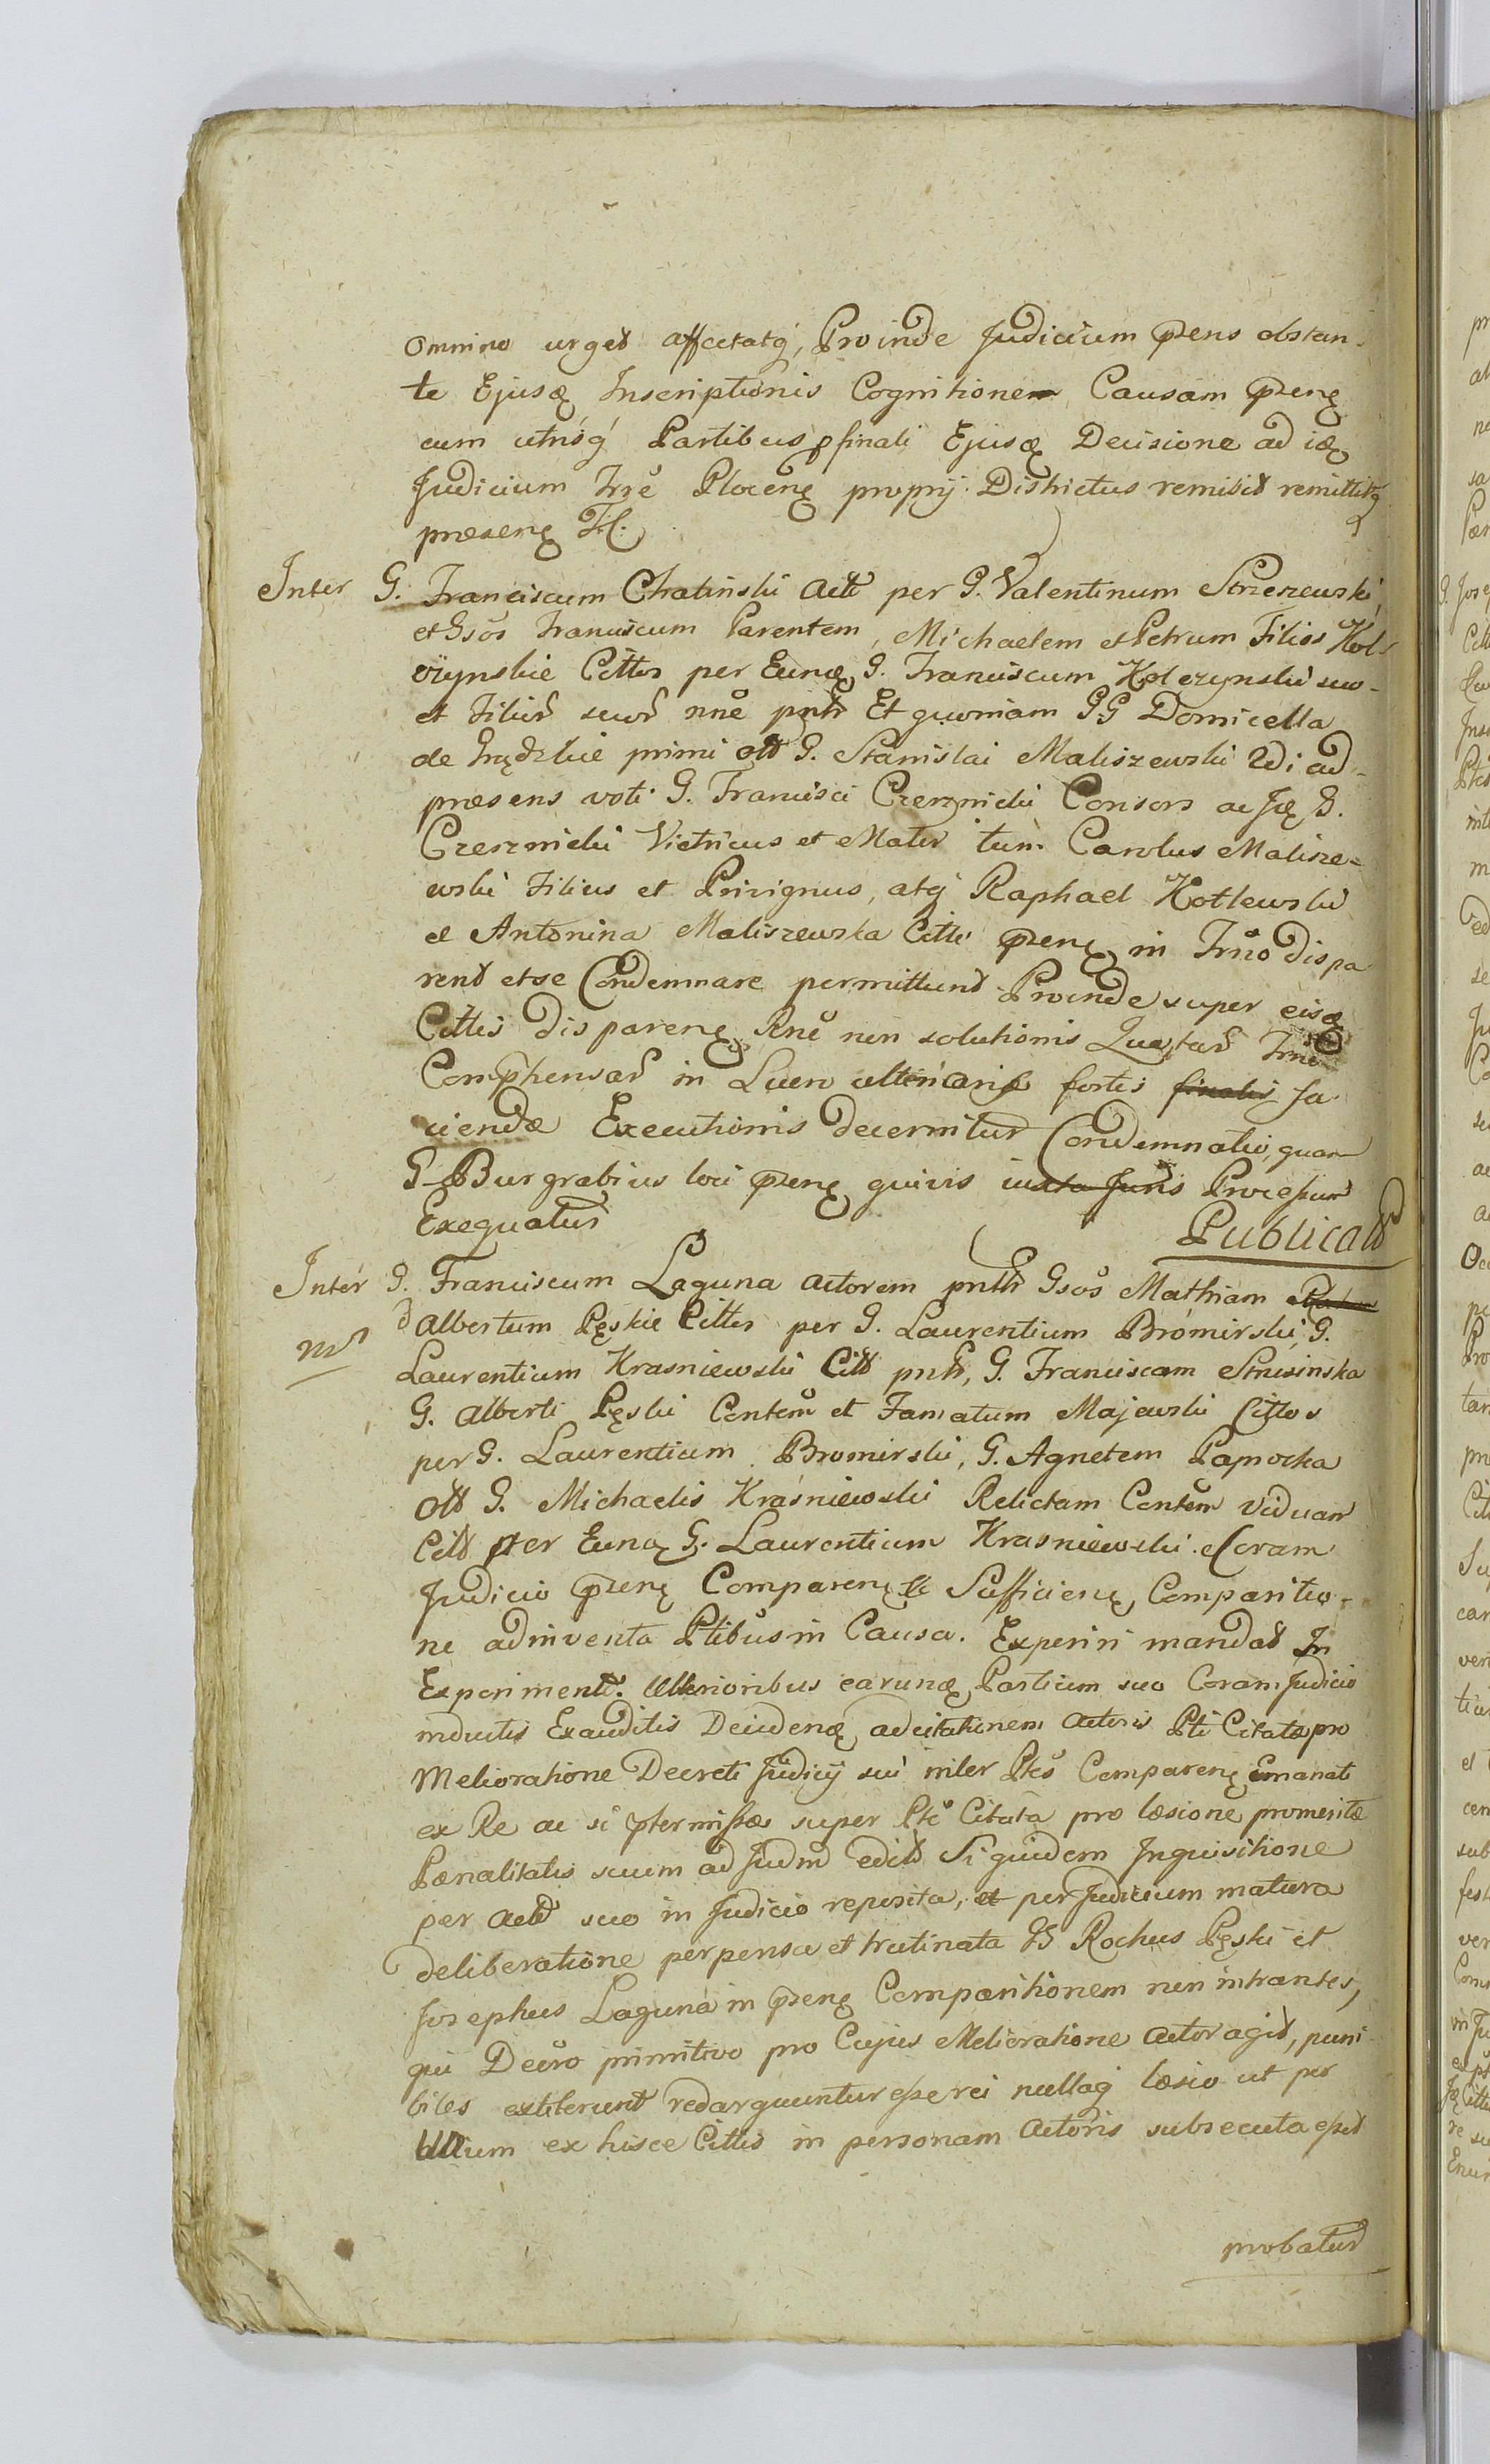 omnino urget affectatq, Proinde Judicium pzens obstan-
te Ejusq Inscriptionis Cognitionem Causam pzenę
cum utrisq Partibus p finali Ejusq Decisione ad idę
Judicium Trre Plocenę proprij Districtus remisit remittitq
praesenę
Inter G. Franciscum Chalinski Actt per G. Valentinum Strzeszewski,
et Gsos Franciscum Parentem, Michaelem et Petrum Filios Kol-
czynskie Cittos per Eunq G. Franciscum Kolczynski suo-
et Filior suor nne pntt Et quoniam GG Domicella
de Grądzkie primi ott G. Stanislai Maliszewski 2di ad-
praesens voti G. Francisci Czerznicki Consors ac Jdę G.
Czerznicki Victricus et Mater tum Carolus Malisze-
wski Filius et Privignus, atq Raphael Kotlewski
et Antonina Maliszewska Citti pzenę in Trno dispa
rent et se Condemnare permittunt Proinde super eisq
Cittis disparenę Rne non solutionis Quartar Trno
Comphensar in Lucro ulterioris fortis finalis fa
ciendae Executionis decernitur Condemnatio, quam
G Burgrabius loci pzenę quivis iuxta Juris Processum
Exequatur
Publicatt
Inter G. Franciscum Laguna Actorem pntt Gsos Mathiam
Albertum Pęskie Cittos per G. Laurentium Bromirski, G.
Laurentium Krasniewski Citt pntt, G. Franciscam Strusinska
G. Alberti Pęski Contem et Famatum Majewski Cittos
per G. Laurentium Bromirski, G. Agnetem Paprocka
ott G. Michaelis Kraśniewski Relictam Contem viduam
Citt per Eunq G. Laurentium Krasniewski. Coram
Judicio pzenę Comparenę Sufficienę Comparitio-
ne adinventa Ptibus in Causa. Experiri mandat In
Experiment. Ulterioribus earunq Partium suo Coram Judicio
inductis Exauditis Deindenę ad citationem Actoris Pti Citatae pro
Melioratione Decreti Judicij sui inter Ptes Comparenę Emanati
ex Re ac si ptermissae super Pte Citata pro laesione promerita
Paenalitatis suum ad Judm edit Siquidem Inquisitione
per Actt suo in Judicio reposita, et per Judicium matura
deliberatione perpensa et trutinata GG Rochus Pęski et
Josephus Laguna in pzenę Comparitionem non intrantes,
qui Decro primitivo pro Cujus Melioratione Actor agit, puni-
biles extiterunt redarguuntur esse rei nullaq laesio ut per
Ullum ex hisce Cittis in personam Actoris subsecuta esset
probatur